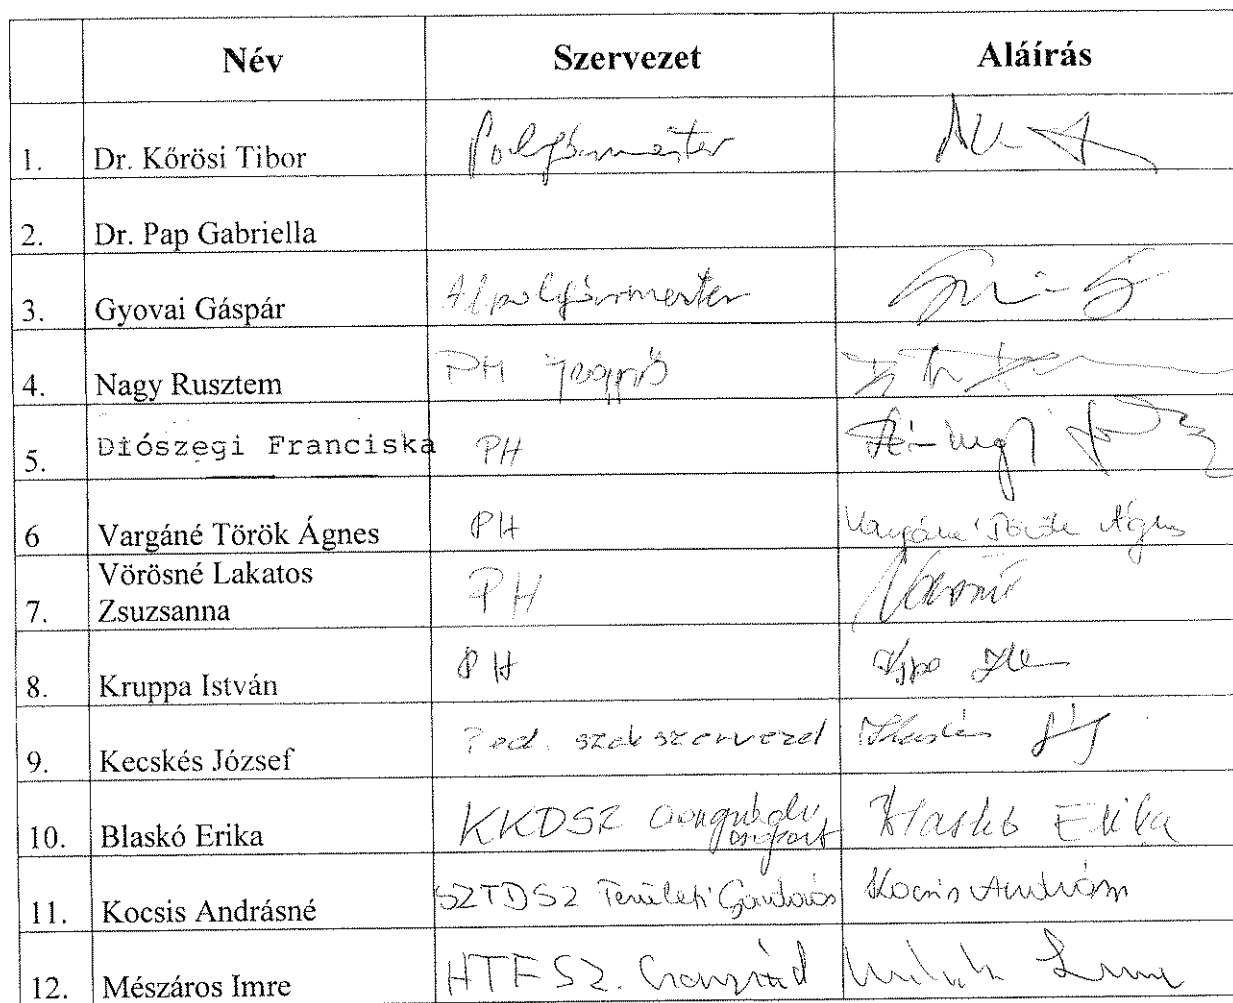 Név Szervezet Aláírás
1. Dr. Kőrösi Tibor Polgármester
2. Dr. Pap Gabriella
3. Gyovai Gáspár Alpolgármester
4. Nagy Rusztem PH
5. Diószegi Franciska PH
6 Vargáné Török Ágnes PH Vargáné Török Ágnes
Vörösné Lakatos
7. Zsuzsanna PH Vörösné
8. Kruppa István PH
9. Kecskés József Ped. szakszervezet
10. Blaskó Erika KKDSZ Blaskó Erika
11. Kocsis Andrásné SZTDSZ Területi Gondozás Kocsis Andrásné
12. Mészáros Imre HTFSZ. Csongrád